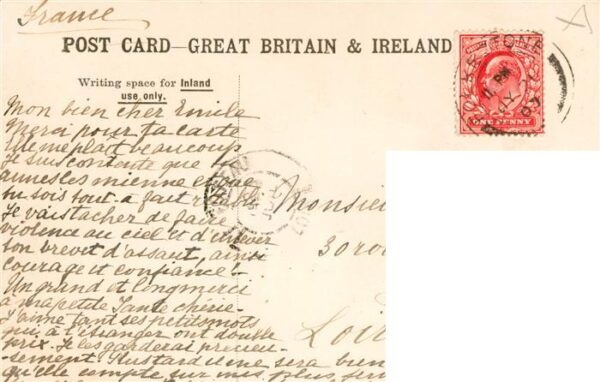 France
POST CARD—GREAT BRITAIN & IRELAND
Writing space for Inland
use only.
ONE PENNY
Mon bien cher Emile
Merci pour ta carte
elle me plait beaucoup
Je suis contente que
aimes les miennes et que
tu sois tout-à fait rétabli
Je vais tacher de faire
violence au ciel et d'enlever
ton brevet d'assaut, ainsi
courage et confiance!-
Un grand et long merci
à ma petite Tante chérie-
J'aime tant ses petits mots
qui, à l'étranger ont double
prix. Je les garderai précieu-
sement. Plus tard il me sera bien
qu'elle compte sur mes plus
Monsie
30 ro
Loir